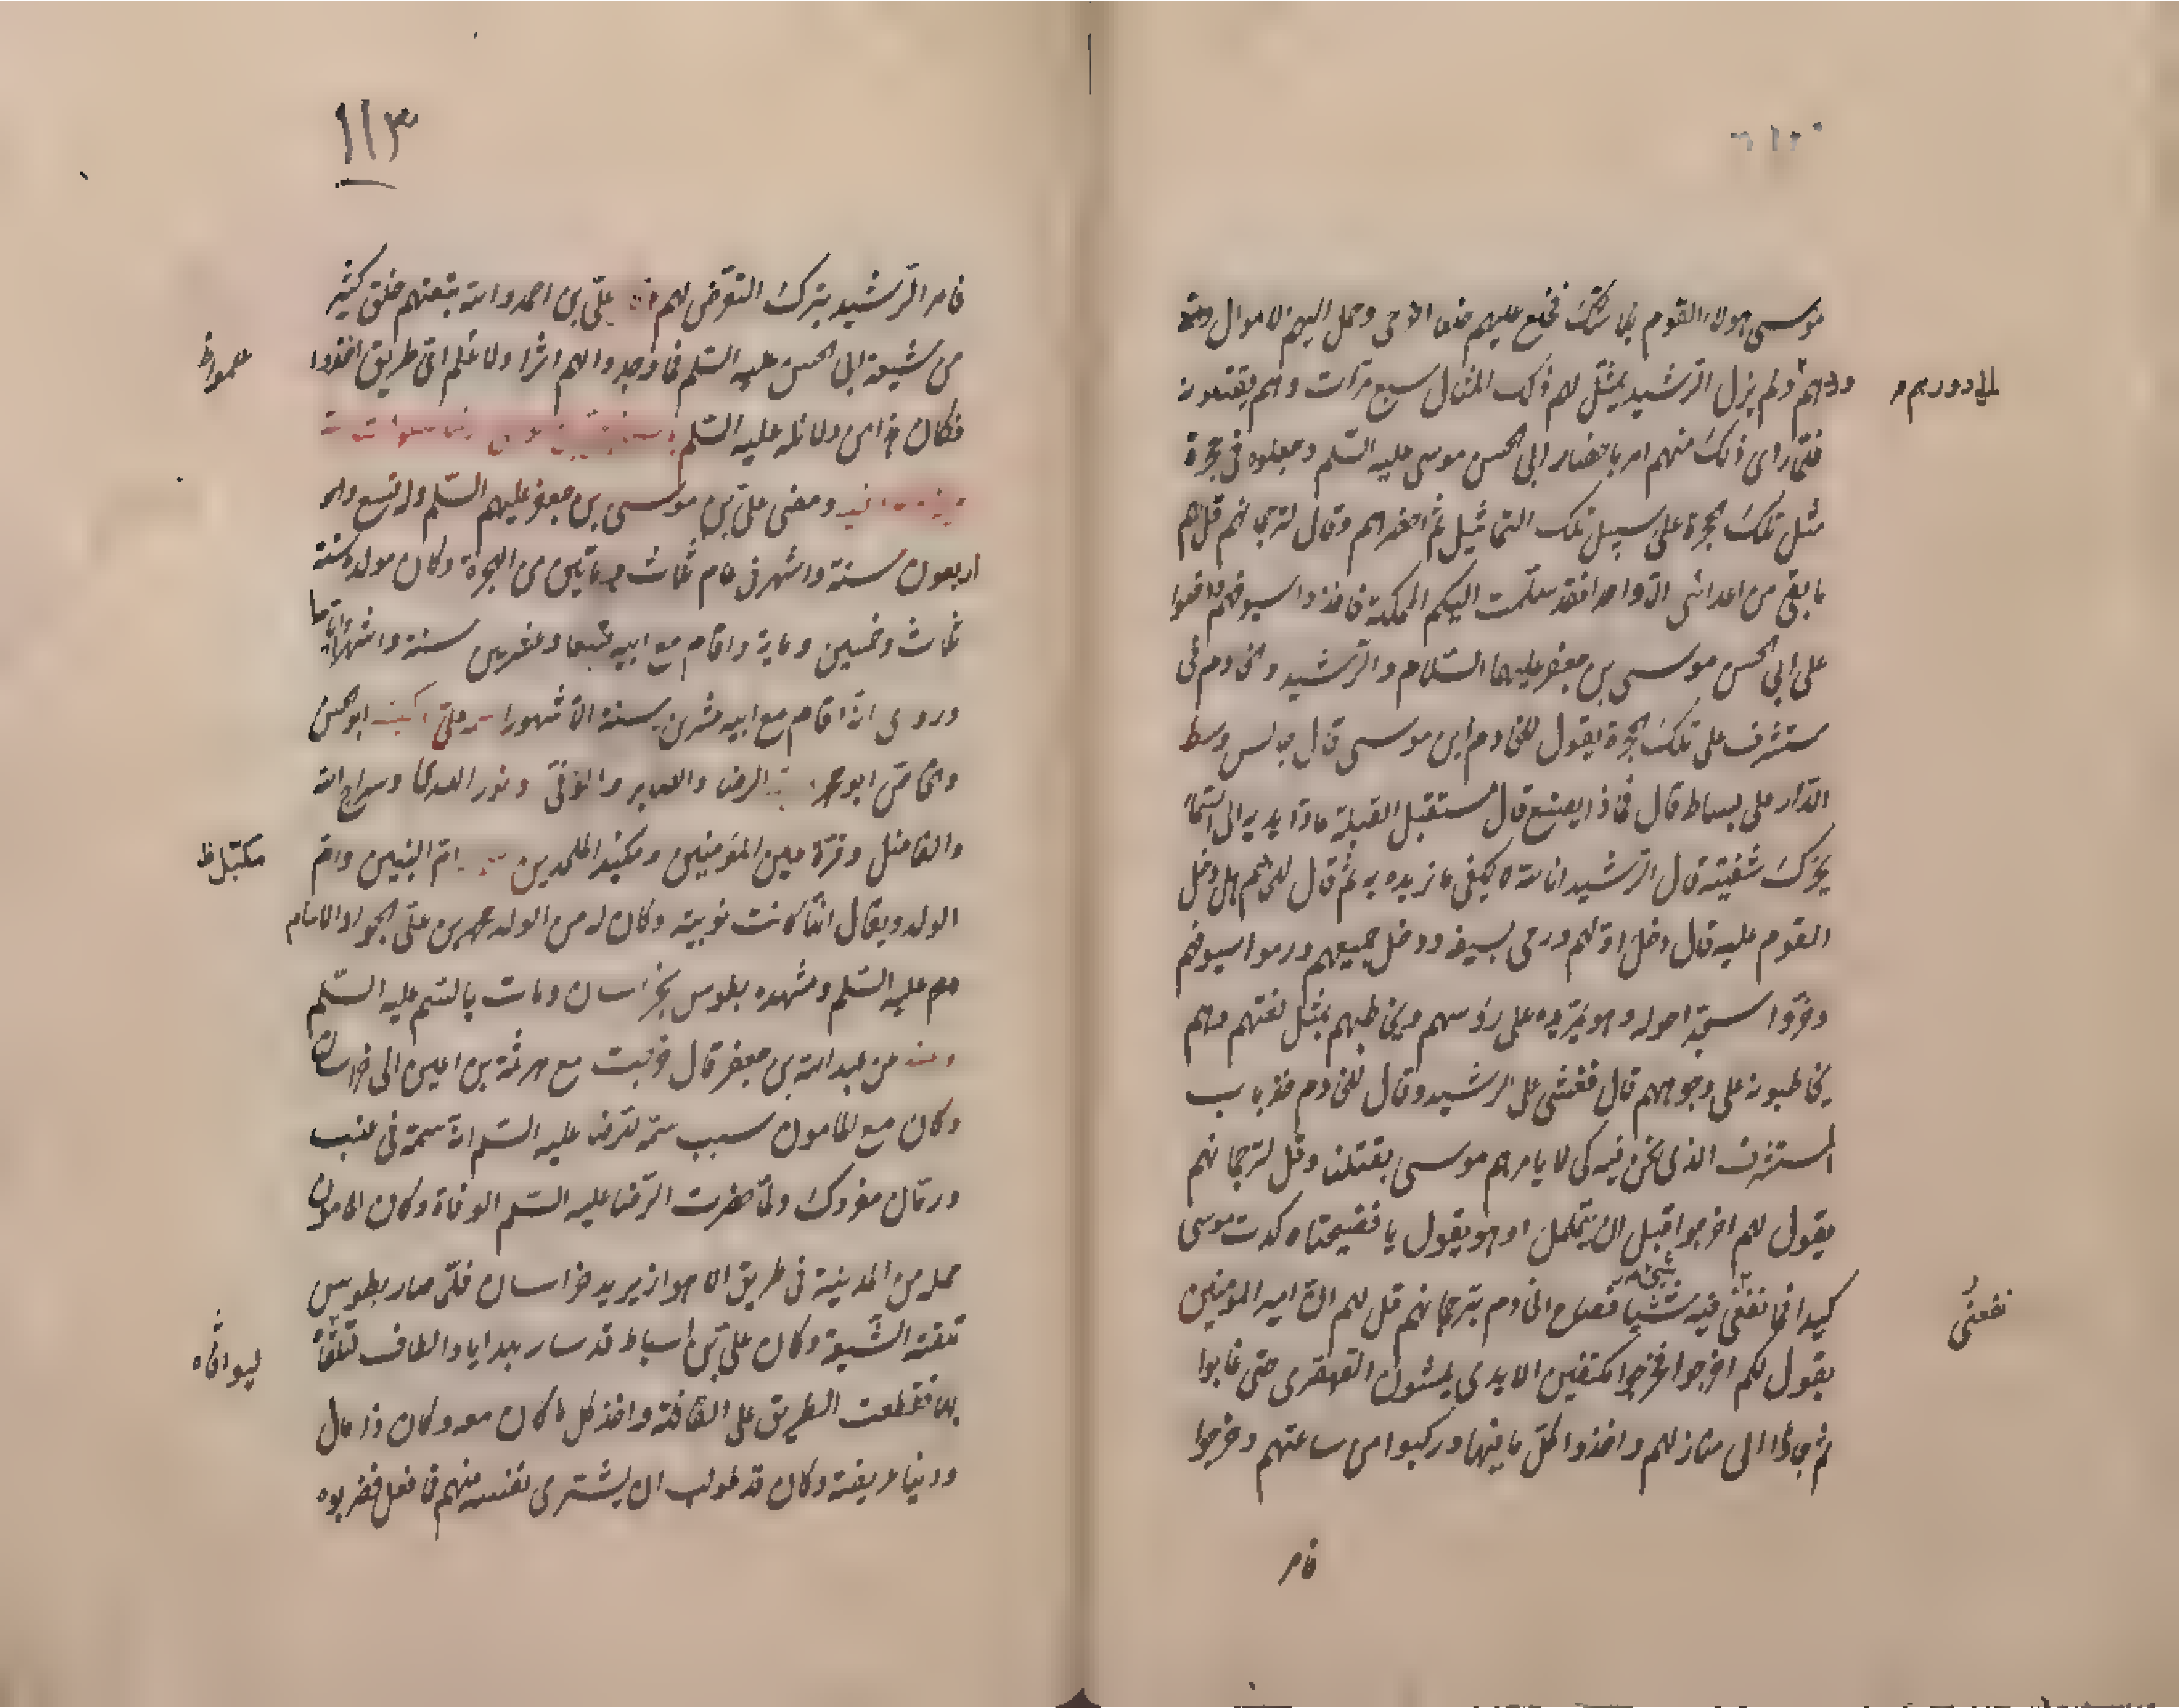 موسى هولاء القوم
ودراهم ولم يزل الرشيد يمثل لهم ذلك المثال سبع مرات وهم يقتلونه
فلمّا راى ذلك منهم امر باحضار ابى الحسن موسى عليه السّلم وجعلوه فى حجرة
مثل تلك الحجرة على سبيل تلك التماثيل ثم احضرهم وقال لترجمانهم قل لهم
ما بقى من اعدائى الّا واحدا فقد سلمت اليكم المملكة فاخذوا سيوفهم
على ابى الحسن موسى بن جعفر عليهما السّلام والرّشيد والخادم فى
مستشرف على تلك الحجرة يقول للخادم اين موسى قال جالس وسط
الدّار على بساط قال فماذا يصنع قال مستقبل القبلة مادّا يديه الى السّماء
يحرّك شفتيه قال الرّشيد انا لله ثم قال للخادم هل دخل
القوم عليه قال دخل اوّلهم ورمى بسيفه ودخل جميعهم ورموا سيوفهم
وخرّوا سجّدا حوله وهو يمرّ يده على رؤسهم ويخاطبهم بمثل لغتهم وهم
يخاطبونه على وجوههم قال فغشى على الرشيد وقال للخادم خذ باب
المستشرف الذى نحن فيه كى لا يامرهم موسى بقتلنا وقل لترجمانهم
يقول لهم اخرجوا قبل ان وهو يقول يا فضيحتاه كدت موسى
كيدا فما نفعنى فيه شيئا فصاح الخادم بترجمانهم قل لهم انّ امير المؤمنين
يقول لكم اخرجوا فخرجوا مكتفين الايدى يمشون القهقرى حتى غابوا
ثم جاؤا الى منازلهم واخذوا كلّ ما فيها وركبوا من ساعتهم وخرجوا
نفعنى
فامر
١١٣
فامر الرّشيد بترك التعرّض لهم علىّ بن احمد وانه تبعتهم خلق كثير
من شيعة ابى الحسن عليه السّلم فما وجدوا لهم اثرا ولا علم اىّ طريق اخذوا
فكان هذا من دلائله عليه السّلم
ومضى علىّ بن موسى بن جعفر عليهم السّلم وله تسع و
اربعون سنة واشهر فى عام ثلاث ومايتين من الهجرة وكان مولده سنة
ثلاث وخمسين ومايه واقام مع ابيه تسعا وعشرين سنة واشهرا
وروى انه اقام مع ابيه عشرين سنة الّا شهورا اسمه علىّ كنيته ابو الحسن
والخاصّ ابو محمد الرضا والصابر والوفىّ ونور الهدى وسراج الله
والفاضل وقرّة عين المؤمنين ومكيد الملحدين امّ البنين وامّ
الولد ويقال انّها كانت نوبية وكان له من الولد محمد بن علىّ الجواد الامام
عليه السّلم ومشهده بطوس بخراسان ومات بالسّم عليه السّلم
وعنه عن عبد الله بن جعفر قال خرجت مع هرثمة بن اعين الى خراسان
وكان مع المامون سبب سمّه للرّضا عليه السّلم انّه سمّه فى عنب
ورمّان مفروك ولمّا حضرت الرّضا عليه السّلم الوفاة وكان المامون
حمله من المدينة فى طريق الاهواز يريد خراسان فلمّا صار بطوس
تلقته الشّيعة وكان علىّ بن اسباط قد سار بهدايا والطاف
بها فقطعت الطريق على القافلة واخذ كل ما كان معه وكان ذا مال
ودنيا عريضة وكان قد طولب ان يشترى نفسه منهم فما فعل فضربوه